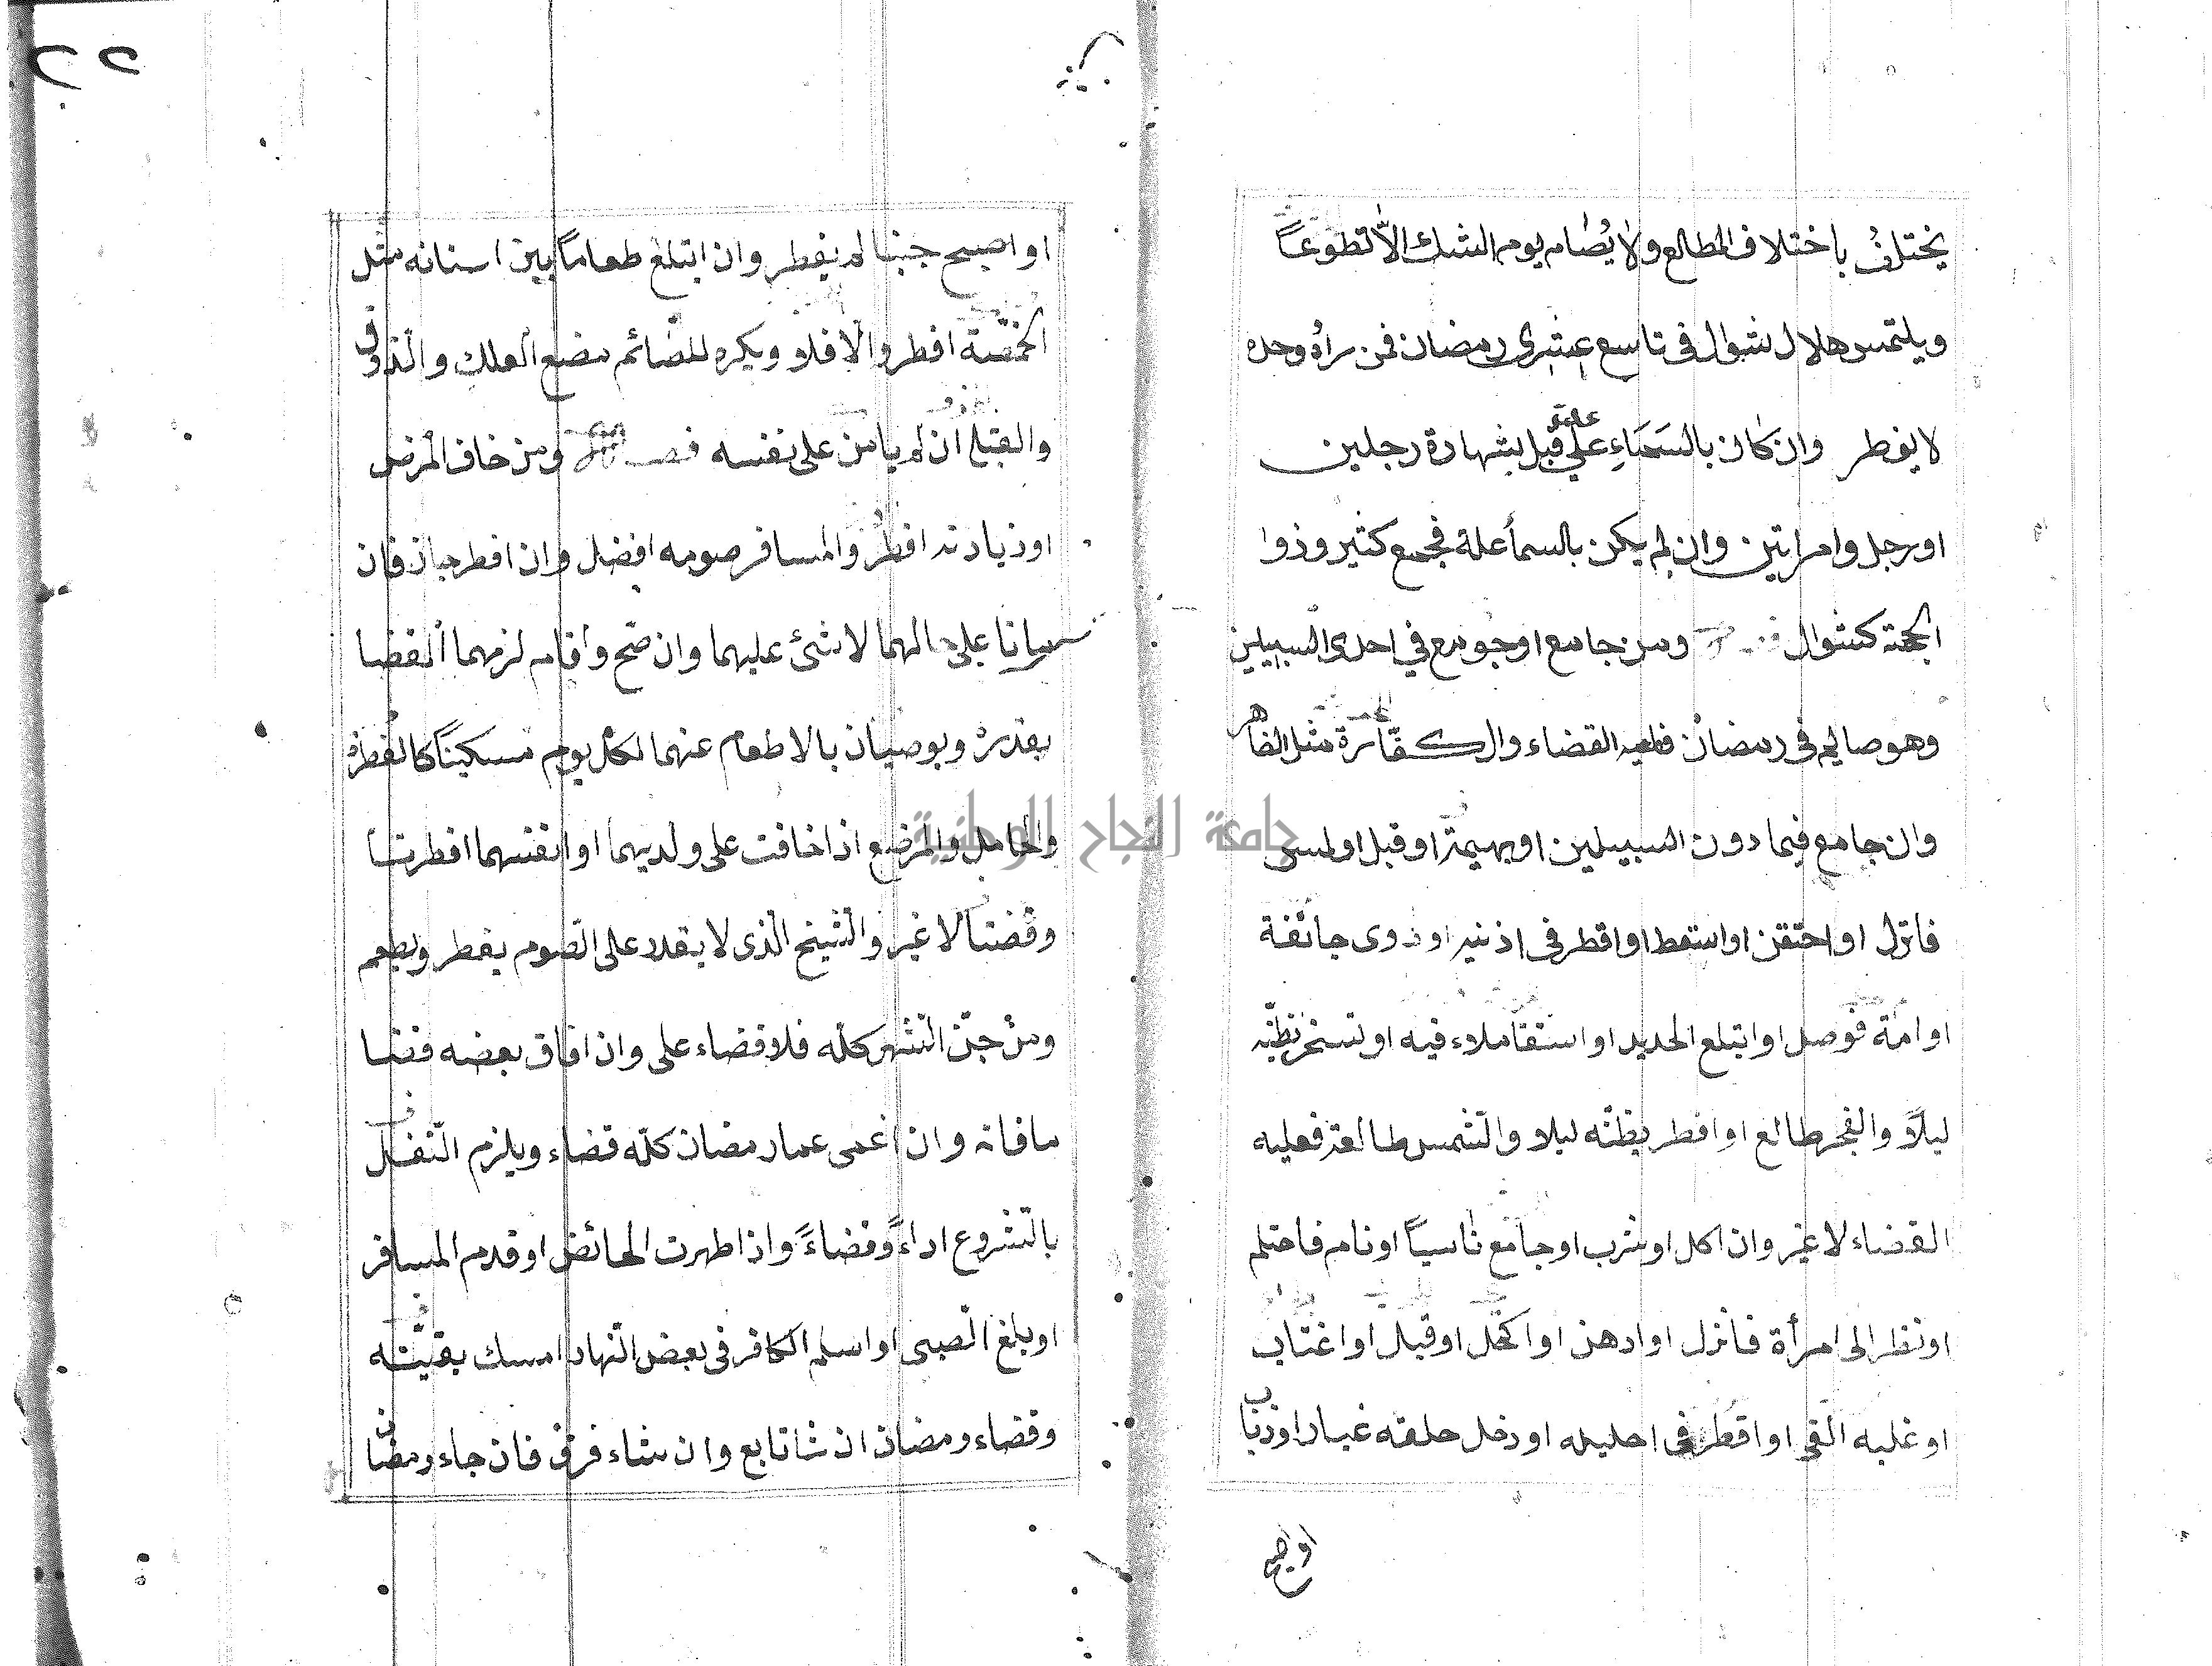 يختلفُ باختلاف المطالع ولا يُصَام يوم الشك الاّ تطوعاً
ويلتمس هلال شوال فى تاسع عشرى رمضان فمن رأه وحده
لا يفطر وان كان بالسَمَاءِ علة قبل بشهادة رجلين
او رجل وامراتين وان لم يكن بالسمأ علة فجمع كثير وذوا
الحجة كشوال ومن جامع او جومع في احدى السبيلين
وهو صايم فى رمضان فعليه القضاء والكفّارة مثل الظاهر
وان جامع فيما دون السبيلين او بهيمة او قبل او لمس
فانزل او احتقن او استعط او اقطر فى اذنيه او دوى جائفة
او امّة فوصل او ابتلع الحديد او استقا ملاء فيه او تسحر بظنّه
ليلاً والفجر طالع او افطر بظنّه ليلا والشّمس طالعة فعليه
القضاء لا غير وان اكل او شرب او جامع ناسياً او نام فاحتلم
او نظر الى امرأة فانزل او ادهن او اكتحل او قبل او اغتاب
او غلبه القى او اقطر فى احليله او دخل حلقه غبار او ذباب
او اصبح
او اصبح جنبا لم يفطر وان ابتلع طعاماً بين اسنانه مثل
الحمّصة افطر والّا فلا ويكره للصّائم مضغ العلك والذّوق
والقبلة ان لم يامن على نفسه فصل ومن خاف المرض
او زيادته افطر والمسافر صومه افضل وان افطر جاز فان
ماتا على حالهما لا شئ عليهما وان صّح واقام لزمهما القضا
بقدره ويوصيان بالاطعام عنهما لكل يوم مسكيناً كالفطرة
والحامل والمرضع اذا خافت على ولديهما او انفسهما افطرتا
وقضتا لا غير والشّيخ الّذى لا يقدر على الصّوم يفطر ويطعم
ومن جنّ الشّهر كلّه فلا قضاء على وان افاق بعضه قضا
ما فاته وان اغمى عمار رمضان كلّه قضاء ويلزم النّفل
بالشّروع اداءً وقضاءً واذا طهرت الحائض او قدم المسافر
او بلغ الصبى او اسلم الكافر فى بعض النّهار امسك بقيّته
وقضاء رمضان ان شا تابع وان شاء فرق فان جاء رمضان
جامعة النجاح الوطنية